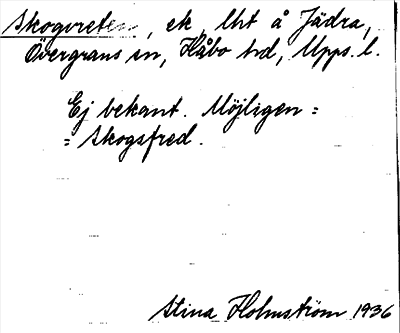 Skogvreten, ek, lht å Jädra,
Övergrans sn, Håbo hd, Upps. l.
Ej bekant. Möjligen =
= Skogsfred.
Stina Holmström 1936